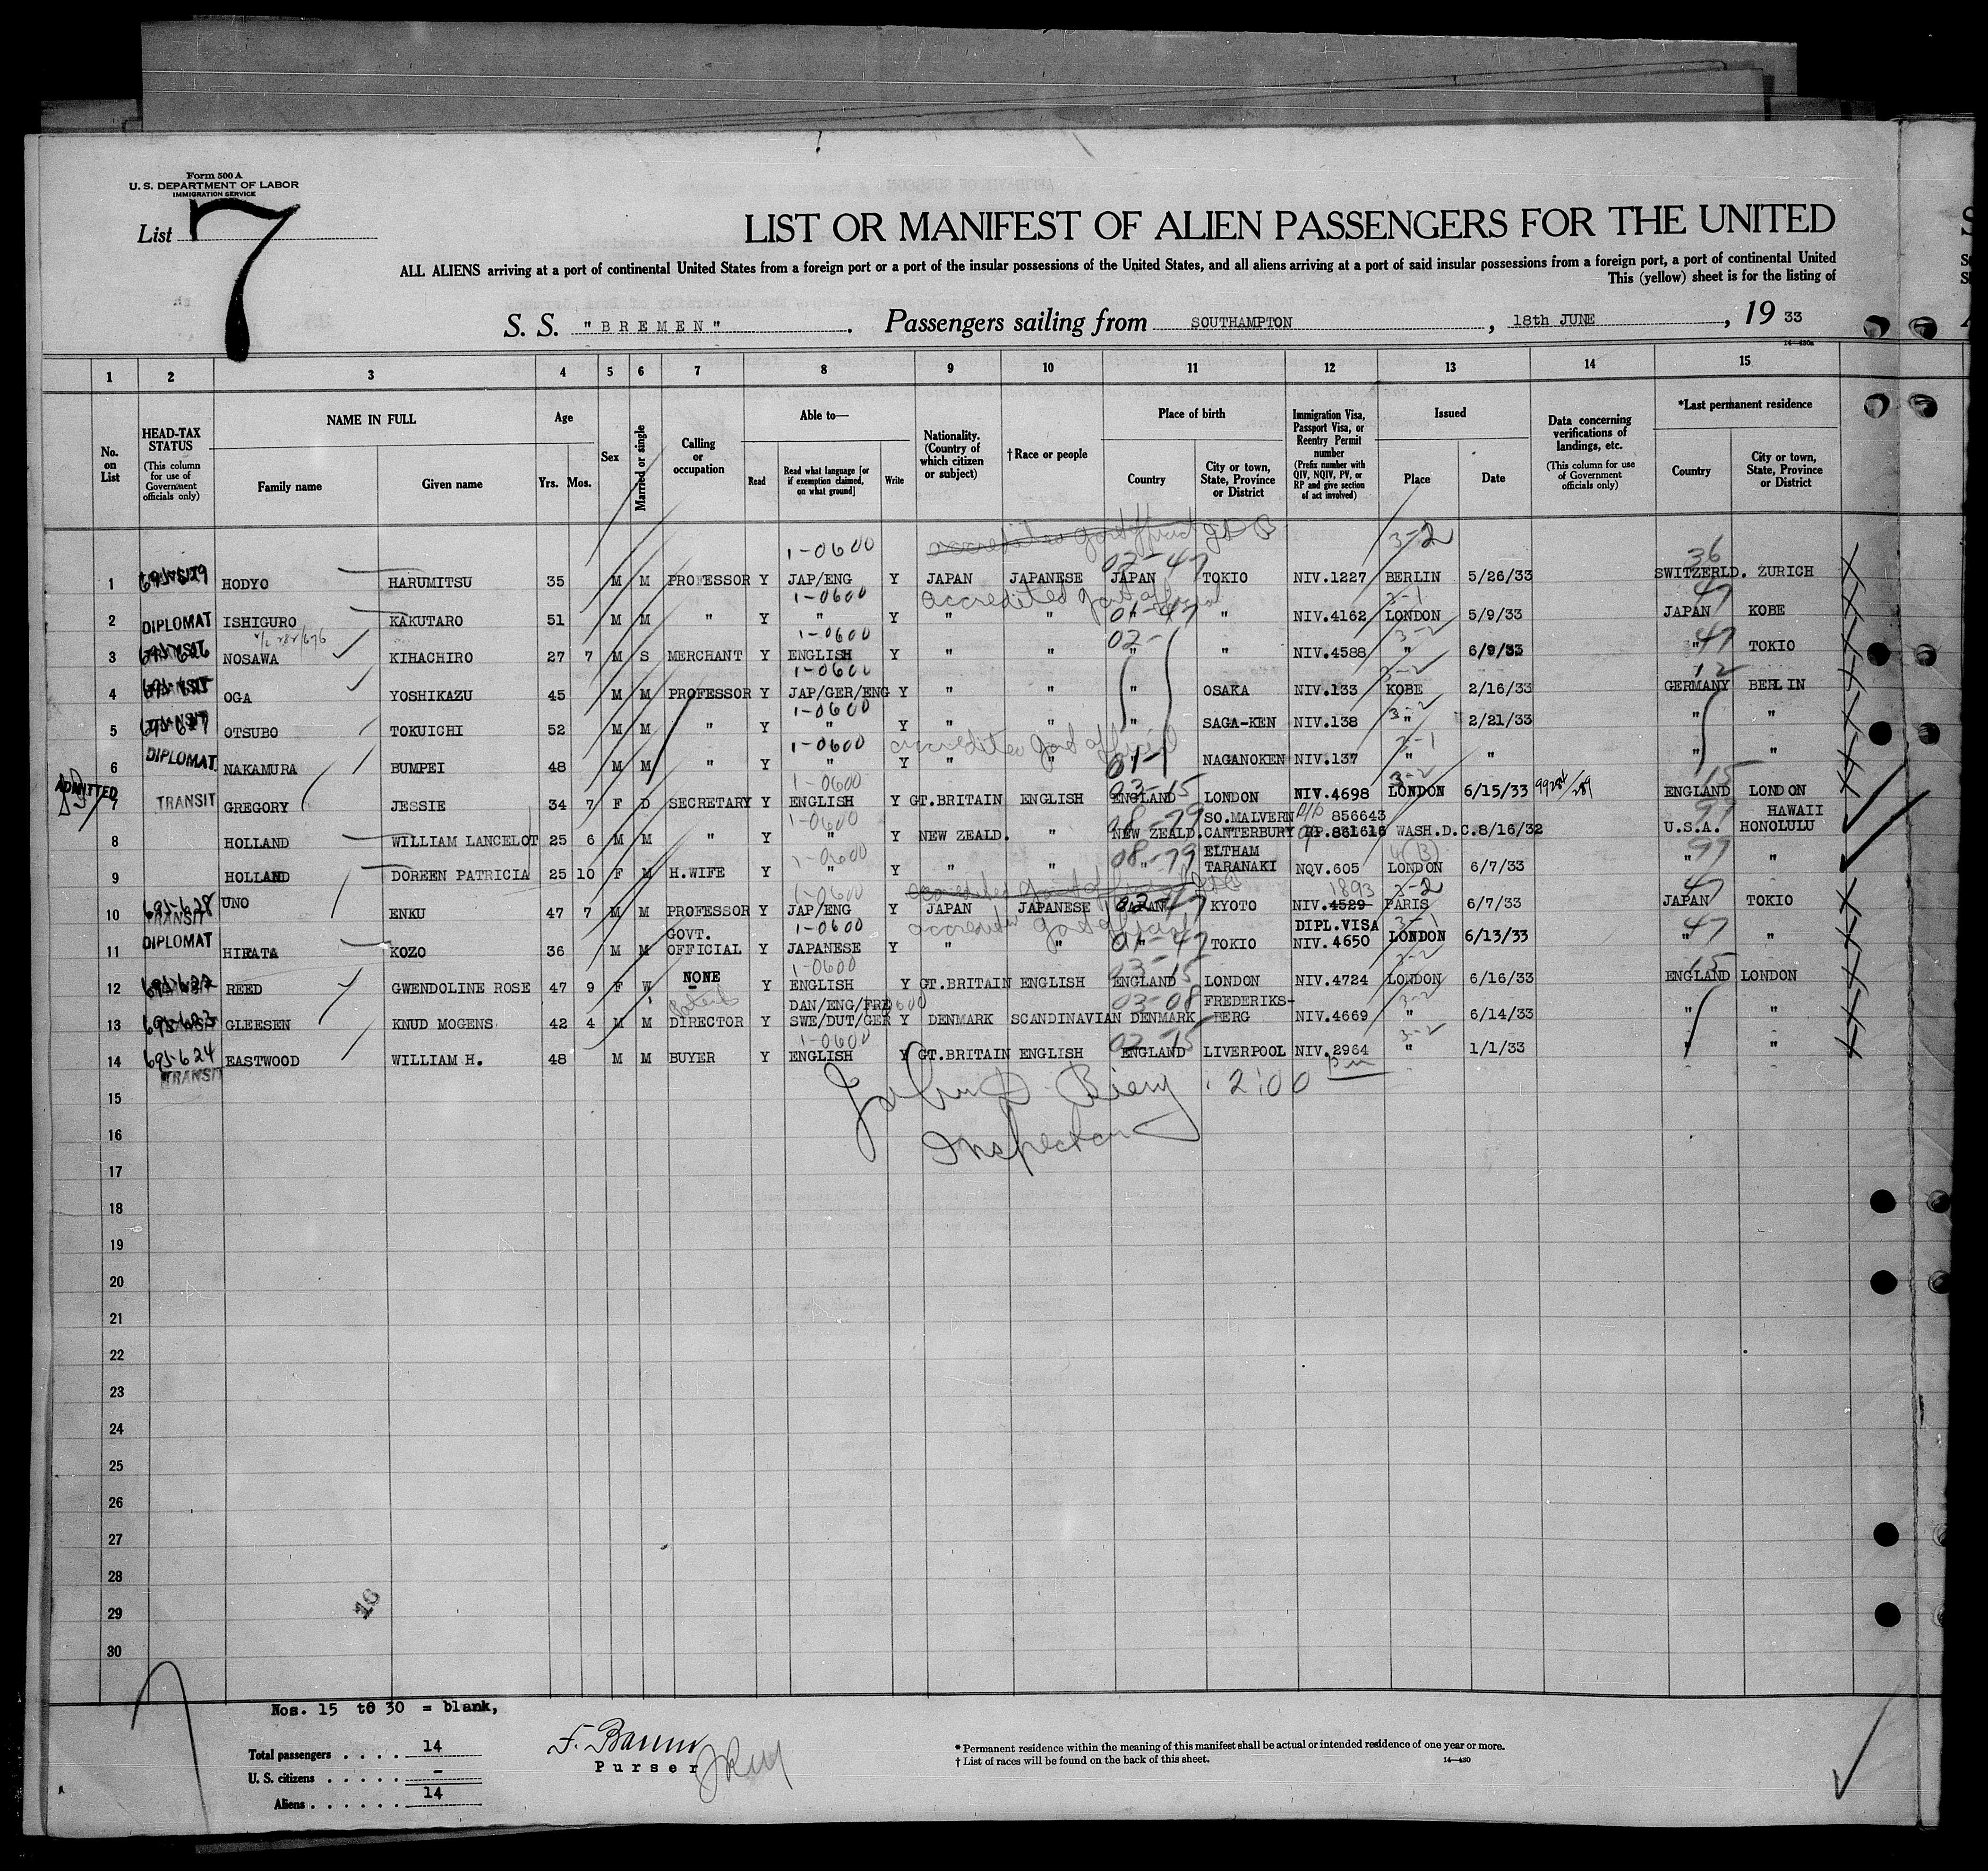 Form 500 A
U. S. DEPARTMENT OF LABOR
IMMIGRATION SERVICE
List 7
LIST OR MANIFEST OF ALIEN PASSENGERS FOR THE UNITED
ALL ALIENS arriving at a port of continental United States from a foreign port or a port of the insular possessions of the United States, and all aliens arriving at a port of said insular possessions from a foreign port, a port of continental United
This (yellow) sheet is for the listing of
S. S. "BREMEN". Passengers sailing from SOUTHAMPTON, 18th JUNE, 19 33
1 2 3 4 5 6 7 8 9 10 11 12 13 14 15
No. on List
HEAD-TAX STATUS (This column for use of Government officials only)
NAME IN FULL Family name Given name
Age Yrs. Mos.
Sex
Married or single
Calling or occupation
Able to— Read Read what language [or if exemption claimed, on what ground] Write
Nationality. (Country of which citizen or subject)
†Race or people
Place of birth Country City or town, State, Province or District
Immigration Visa, Passport Visa, or Reentry Permit number (Prefix number with QIV, NQIV, PV, or RP and give section of act involved)
Issued Place Date
Data concerning verifications of landings, etc. (This column for use of Government officials only)
*Last permanent residence Country City or town, State, Province or District
1-0600 3-2 36
1 HODYO HARUMITSU 35 M M PROFESSOR Y JAP/ENG Y JAPAN JAPANESE JAPAN TOKIO NIV.1227 BERLIN 5/26/33 SWITZERLD. ZURICH
1-0600 accredited 3-1 47
2 DIPLOMAT ISHIGURO KAKUTARO 51 M M " Y " Y " " " " NIV.4162 LONDON 5/9/33 JAPAN KOBE
1-0600 02- 3-2 47
3 NOSAWA KIHACHIRO 27 7 M S MERCHANT Y ENGLISH Y " " " " NIV.4588 " 6/9/33 " TOKIO
1-0600 3-2 12
4 OGA YOSHIKAZU 45 M M PROFESSOR Y JAP/GER/ENG Y " " " OSAKA NIV.133 KOBE 2/16/33 GERMANY BERLIN
1-0600 3-2
5 OTSUBO TOKUICHI 52 M M " Y " Y " " " SAGA-KEN NIV.138 " 2/21/33 " "
1-0600 accredited Govt official 3-1
6 DIPLOMAT. NAKAMURA BUMPEI 48 M M " Y " Y " " " NAGANOKEN NIV.137 " " " "
1-0600 03-15 3-2 15
ADMITTED 7 TRANSIT GREGORY JESSIE 34 7 F D SECRETARY Y ENGLISH Y GT.BRITAIN ENGLISH ENGLAND LONDON NIV.4698 LONDON 6/15/33 ENGLAND LONDON
1-0600 08-79 SO.MALVERN 856643 99 HAWAII
8 HOLLAND WILLIAM LANCELOT 25 6 M M " Y " Y NEW ZEALD. " NEW ZEALD. CANTERBURY WASH.D.C. 8/16/32 U.S.A. HONOLULU
1-0600 08-79 ELTHAM 99
9 HOLLAND DOREEN PATRICIA 25 10 F M H.WIFE Y " Y " " " TARANAKI NQV.605 LONDON 6/7/33 " "
1-0600 1893 3-2 47
10 TRANSIT UNO ENKU 47 7 M M PROFESSOR Y JAP/ENG Y JAPAN JAPANESE JAPAN KYOTO NIV.4529 PARIS 6/7/33 JAPAN TOKIO
GOVT. 1-0600 DIPL.VISA 3-1 47
11 DIPLOMAT HIRATA KOZO 36 M M OFFICIAL Y JAPANESE Y " " " TOKIO NIV.4650 LONDON 6/13/33 " "
1-0600 03-15 3-2 15
12 REED GWENDOLINE ROSE 47 9 F W NONE Y ENGLISH Y GT.BRITAIN ENGLISH ENGLAND LONDON NIV.4724 LONDON 6/16/33 ENGLAND LONDON
DAN/ENG/FR 03-08 FREDERIKS- 3-2
13 GLEESEN KNUD MOGENS 42 4 M M DIRECTOR Y SWE/DUT/GER Y DENMARK SCANDINAVIAN DENMARK BERG NIV.4669 " 6/14/33 " "
1-0600 3-2
14 695-624 TRANSIT EASTWOOD WILLIAM H. 48 M M BUYER Y ENGLISH Y GT.BRITAIN ENGLISH ENGLAND LIVERPOOL NIV.2964 " 1/1/33 " "
2:00 pm
15
Inspector
16
17
18
19
20
21
22
23
24
25
26
27
28
29
30
16
Nos. 15 to 30 = blank,
Total passengers . . . . 14
U. S. citizens . . . . . -
Aliens . . . . . . 14
Purser
* Permanent residence within the meaning of this manifest shall be actual or intended residence of one year or more.
† List of races will be found on the back of this sheet.
14—430